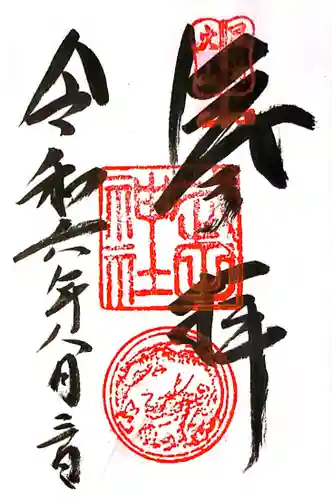 奉拝
令和六年八月三日
神社